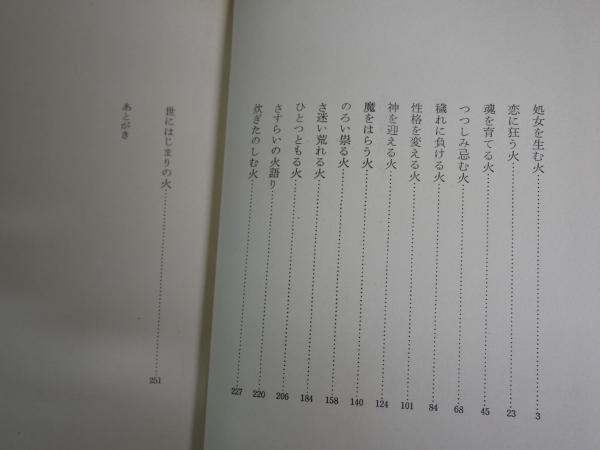 処女を生む火……………………3
恋に狂う火……………………23
魂を育てる火……………………45
つつしみ忌む火……………………68
穢れに負ける火……………………84
性格を変える火……………………101
神を迎える火……………………124
魔をはらう火……………………140
のろい祟る火……………………158
さ迷い荒れる火……………………184
ひとつともる火……………………206
さすらいの火語り……………………220
炊ぎたのしむ火……………………227
世にはじまりの火……………………251
あとがき